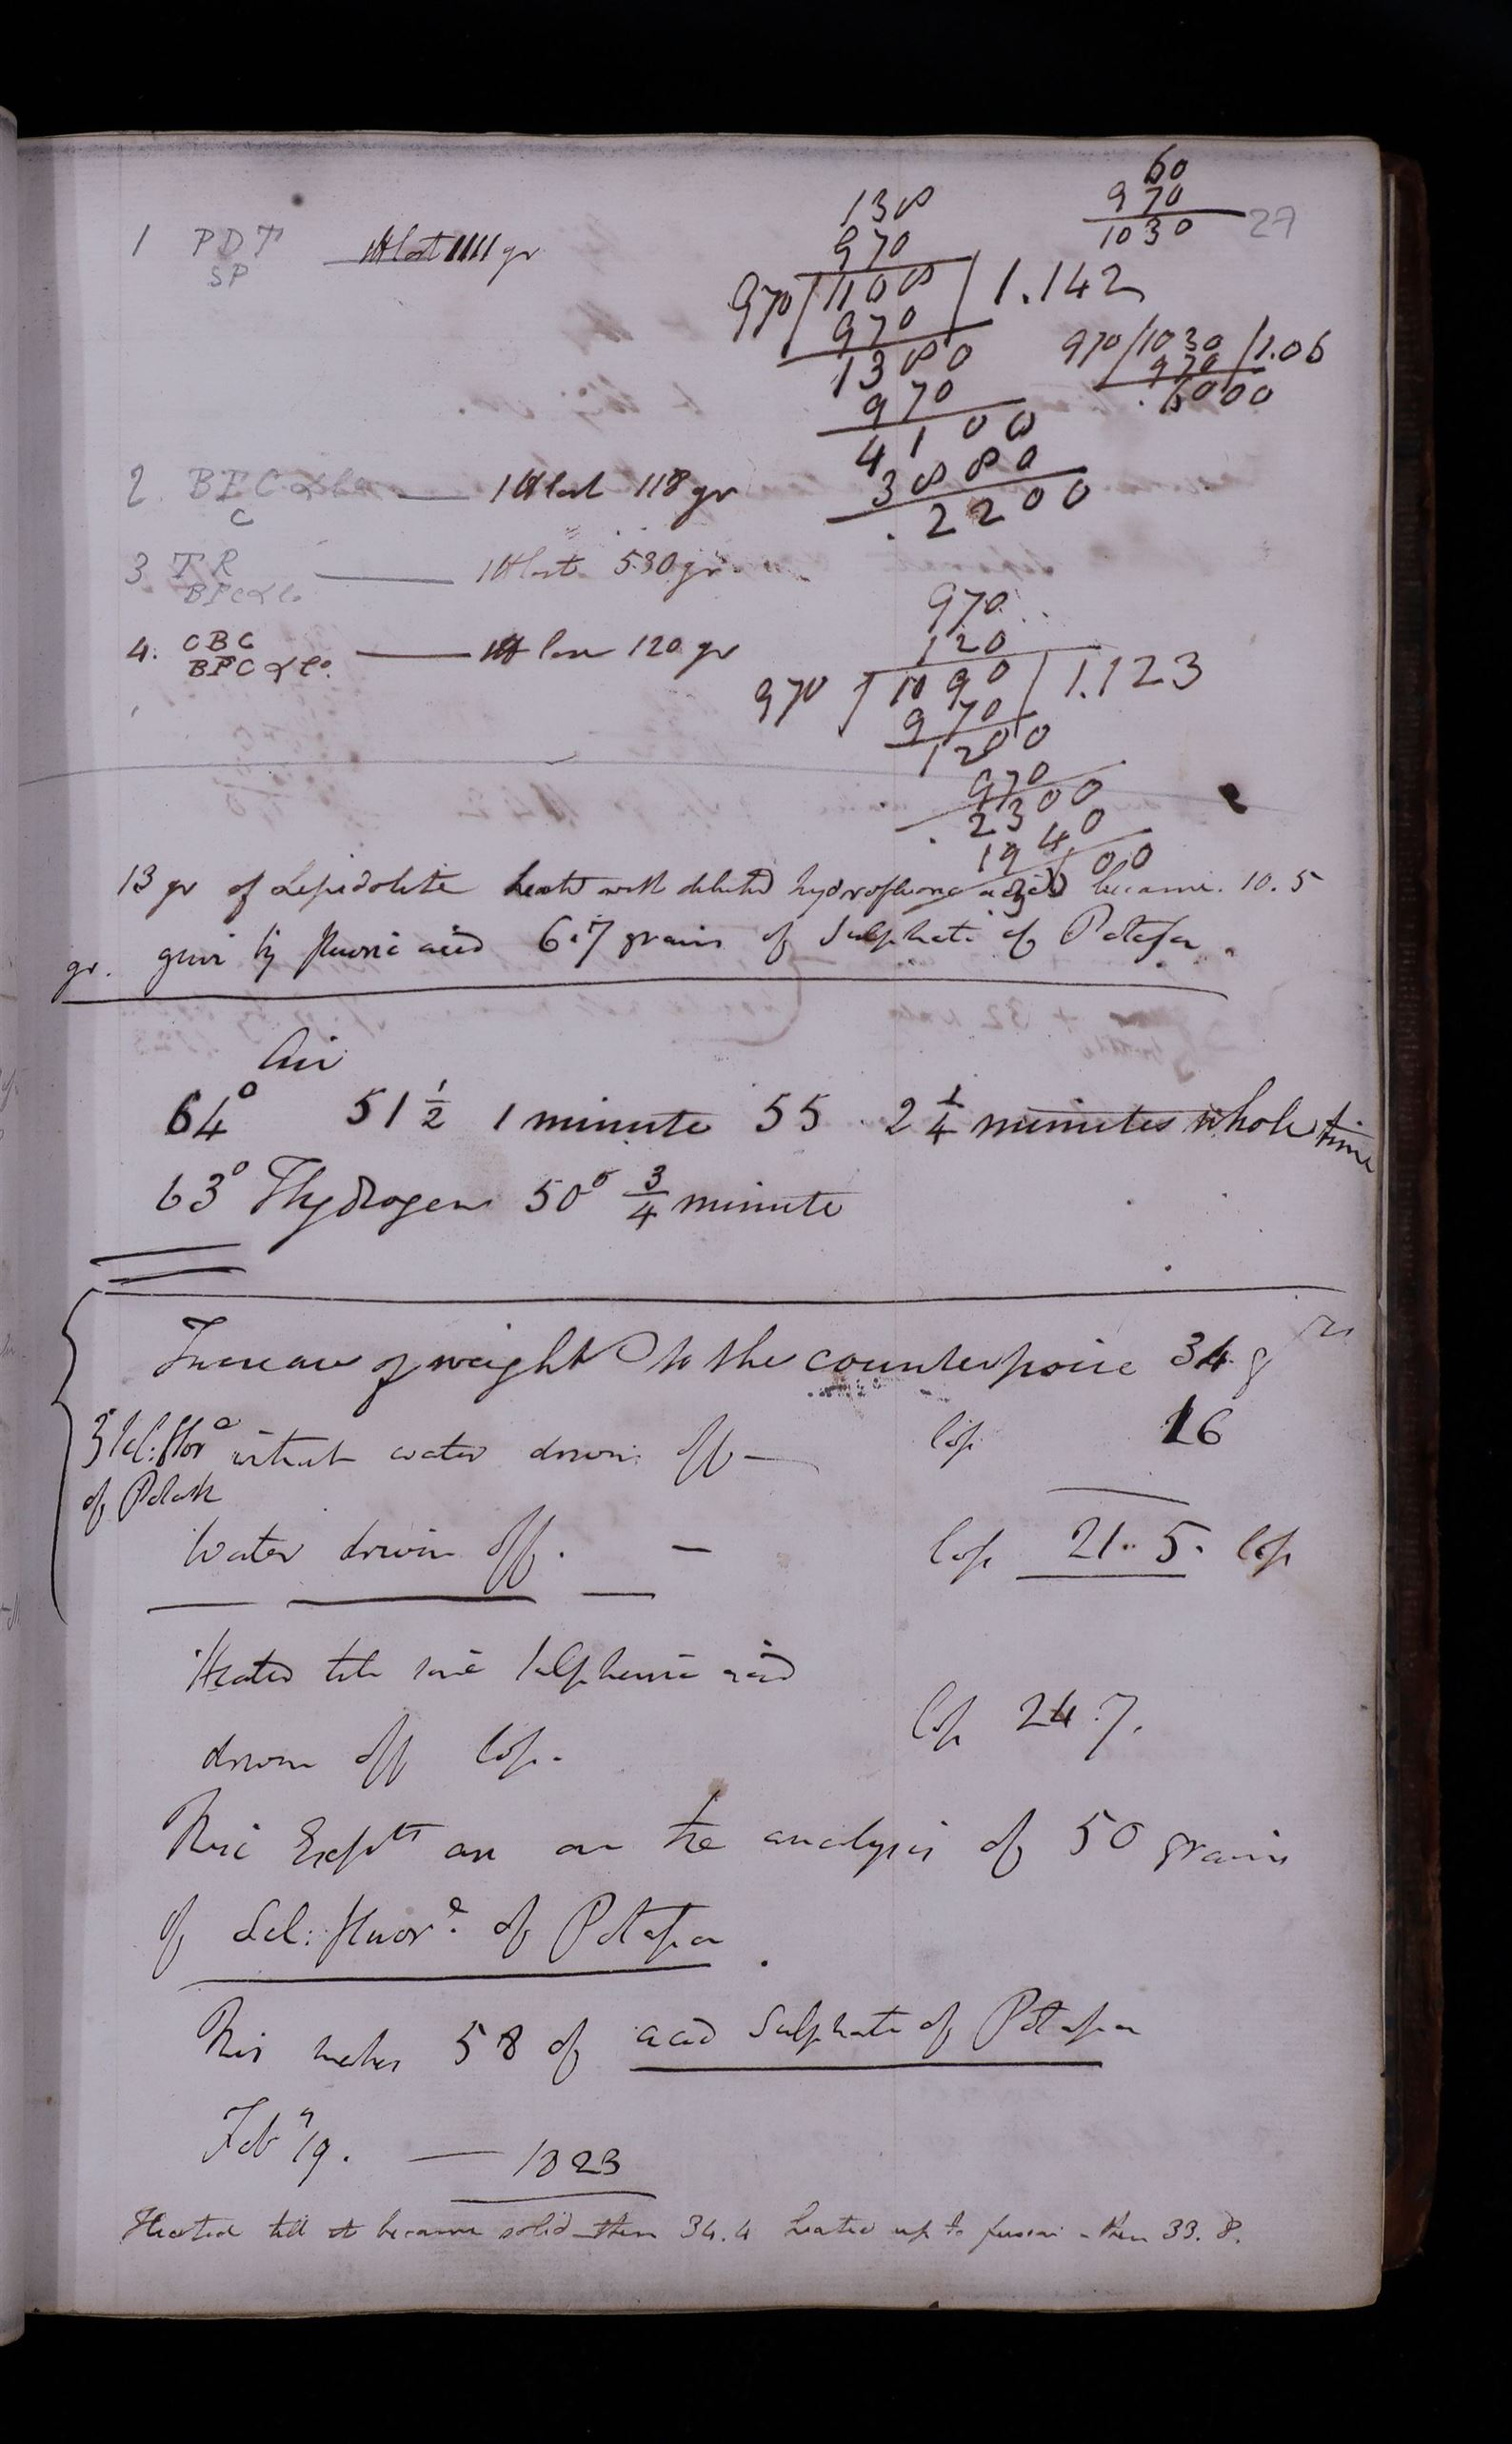 60
970
1030
27
138
970
970/1108/1.142
970
1380
970
4100
3880
2200
970/1030/1.06
970
6000
1 PDT
SP
1 lb lost 1111 gr
2. BFC
C
1 lb lost 118 gr
3 TR
1 lb lost 530 gr
4. CBC
BPC & Co.
1 lb loss 120 gr
970
120
970/1090/1.123
970
1200
970
2300
1940
13 gr of Lepidolite heated with diluted hydrofluoric acid became. 10.5
gr. gave by fluoric acid 6.7 grains of Sulphate of Potassa.
Air
64° 51 1/2 1 minute 55 2 1/4 minutes whole time
63° Hydrogen 50° 3/4 minute
Increase of weight to the counterpoise 34 grs
Sil: fluor e
of Potash
water driven off — loss 16
Water driven off. — loss 21.5. loss
Heated till some sulphuric acid
driven off loss. loss 24.7.
This Expts are on the analysis of 50 grains
of Sil: fluor e. of Potassa.
This makes 58 of acid Sulphate of Potassa
Feb y 19. — 1823
Heated till it became solid then 34.4 heated up to fusion - then 33.8.